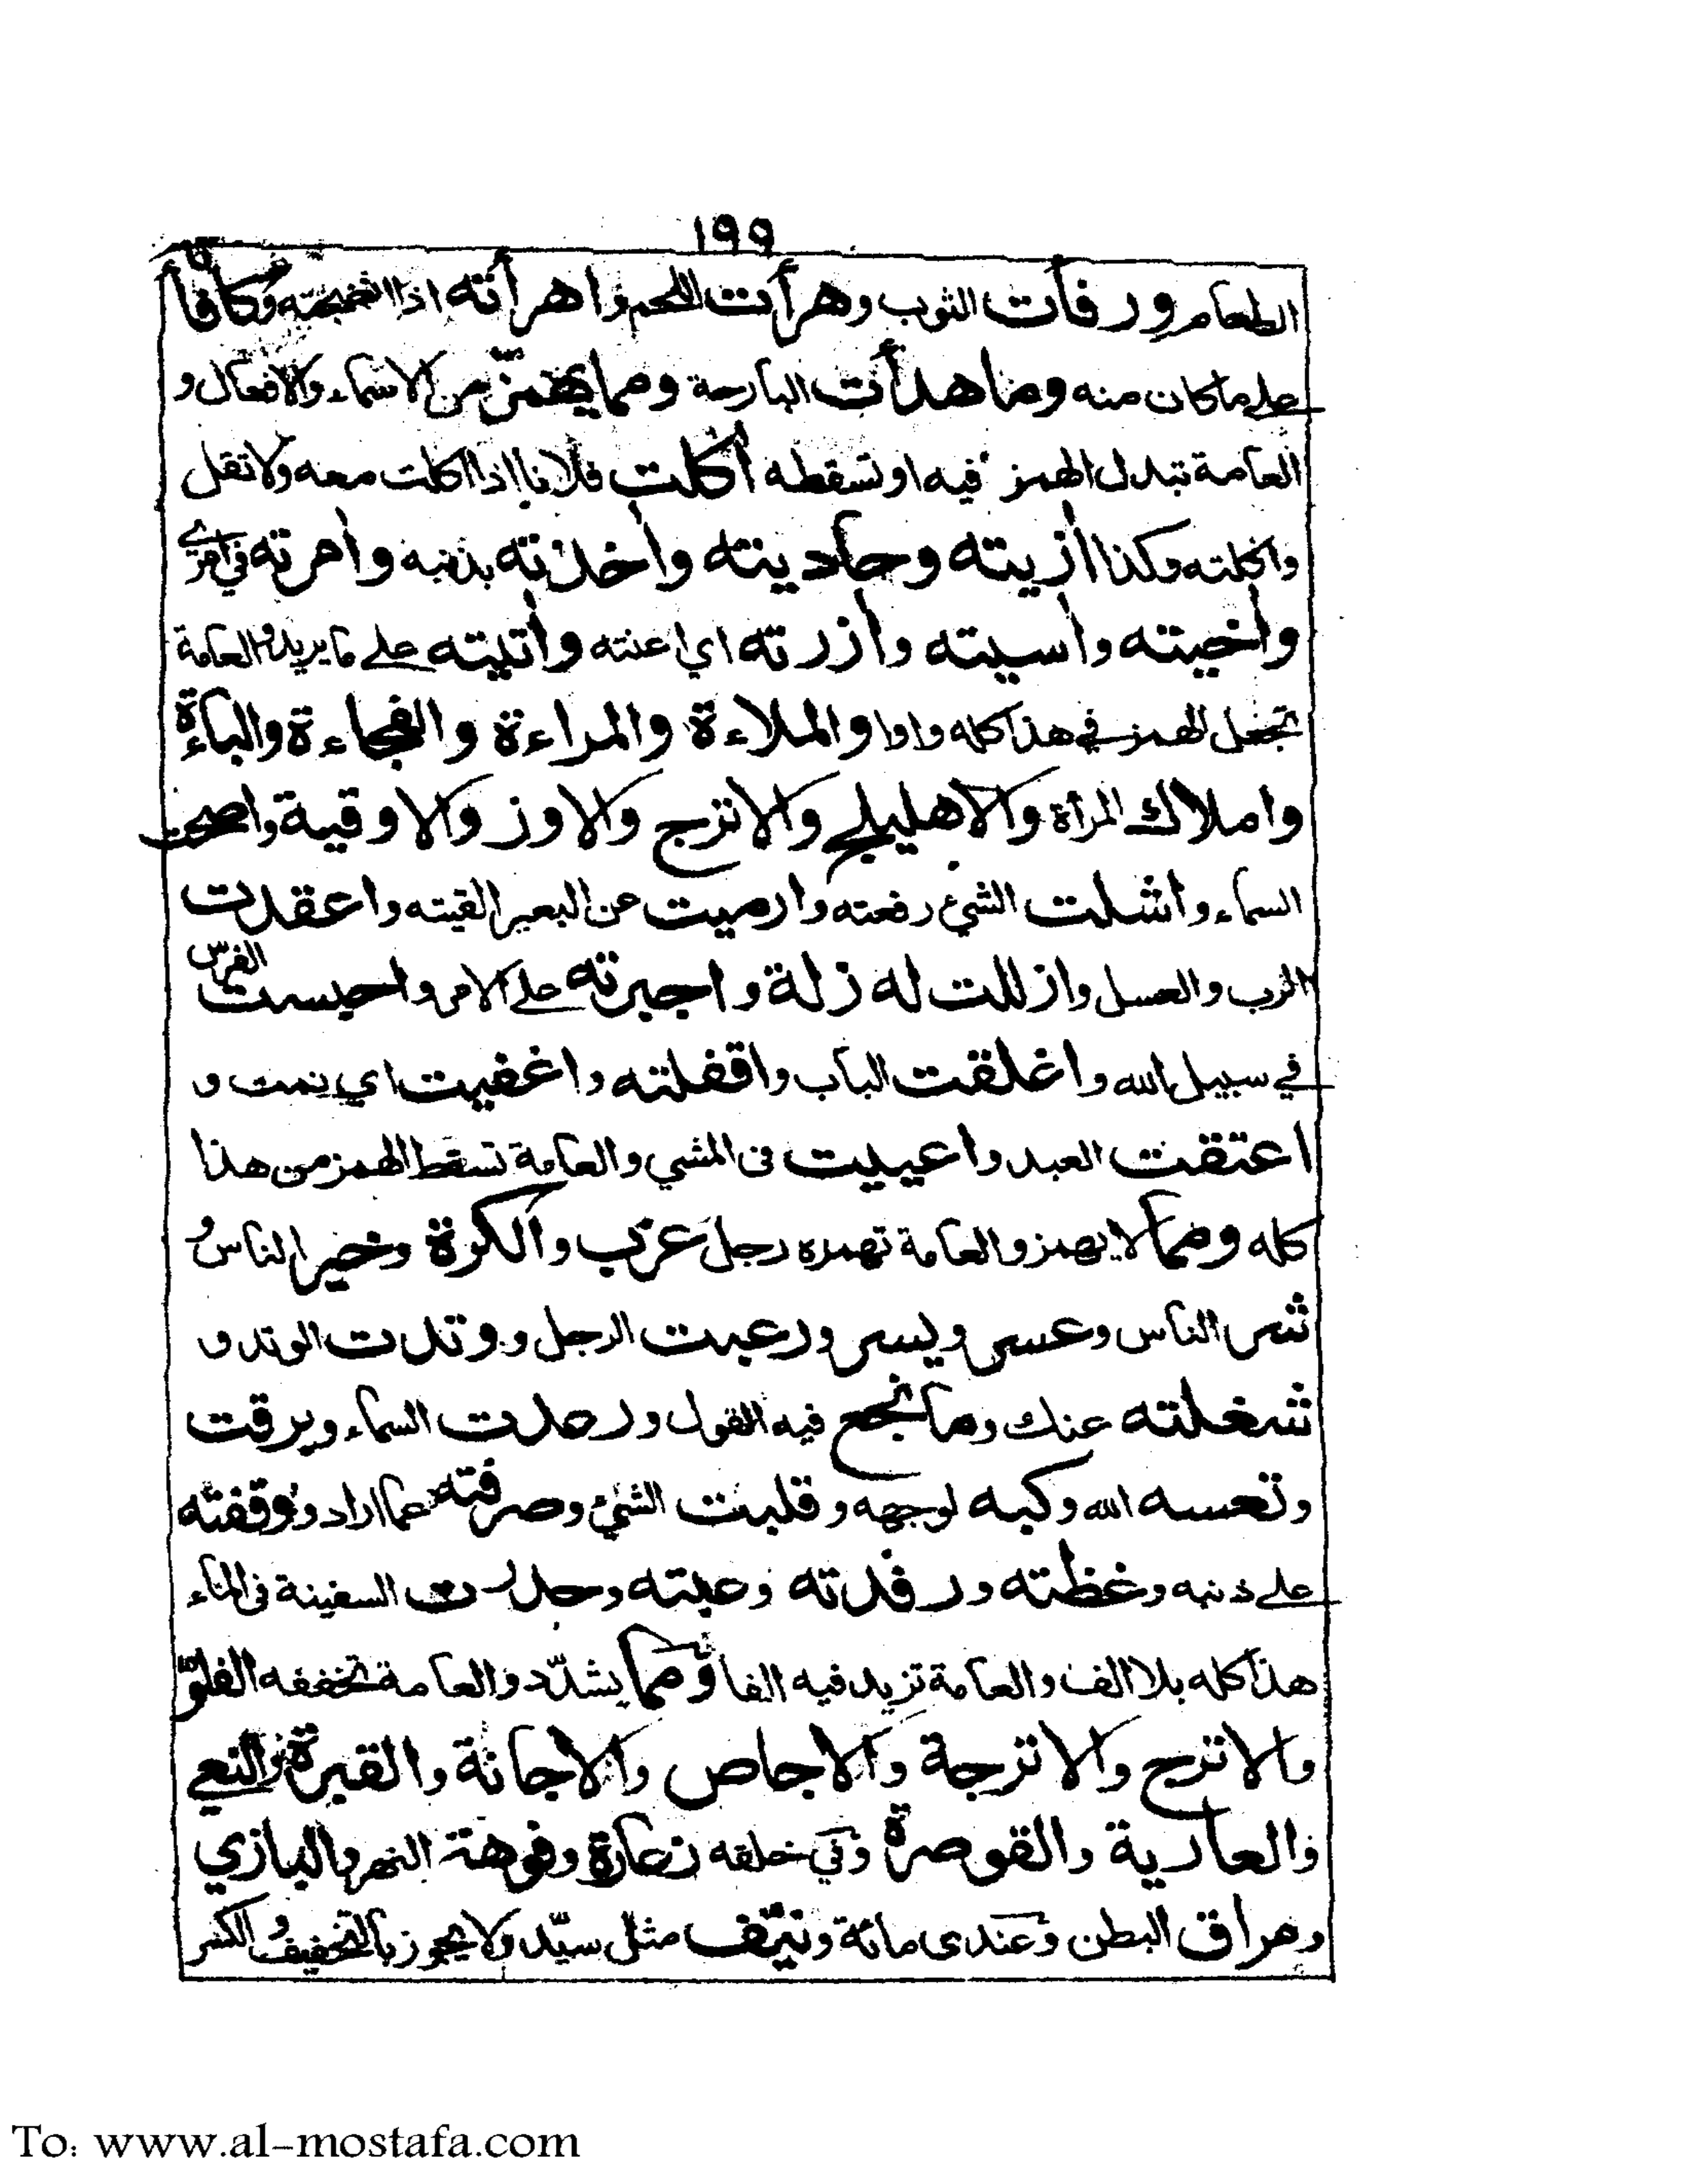 ١٩٩
الطعام ورفأت الثوب وهرأت اللحم واهرأته اذا انضجته وكافأته
على ما كان منه وما هدأت البارحة ومما يهمز من الاسماء والافعال و
العامة تبدل الهمز فيه او تسقطه آكلت فلانا اذا اكلت معه ولا تقل
واكلته وكذا آزيته وحاديته وآخذته بذنبه وآمرته في امري
وآخيته وآسيته وآزرته اي اعنته وآتيته على ما يريد والعامة
تجعل الهمز في هذا كله واوا والملاءة والمراءة والفجاءة والباءة
واملاك المرأة والاهليلج والاترج والاوز والاوقية واصحت
السماء واشلت الشئ رفعته وارميت عن البعير القيته واعقدت
الرب والعسل وازللت له زلة واجبرته على الامر واحبست الفرس
في سبيل الله واغلقت الباب واقفلته واغفيت اي نمت و
اعتقت العبد واعييت فى المشي والعامة تسقط الهمز من هذا
كله ومما لا يهمز والعامة تهمزه رجل عزب والكرة وخير الناس و
شر الناس وعسر ويسر ورعبت الرجل ووتدت الوتد و
شغلته عنك وما نجع فيه القول ورعدت السماء وبرقت
وتعسه الله وكبه لوجهه وقلبت الشئ وصرفته عما اراد ووقفته
على ذنبه وغظته ورفدته وعبته وحدرت السفينة فى الماء
هذا كله بلا الف والعامة تزيد فيه الفا ومما يشدّد والعامة تخففه الفلوّ
والاترج والاترجة والاجاص والاجانة والقبرة والنعي
والعارية والقوصرة وفي خلقه زعارة وفوهة النهر والبازي
ومراق البطن وعندى مائة ونيّف مثل سيّد ولا يجوز بالتخفيف والكسر
To: www.al-mostafa.com